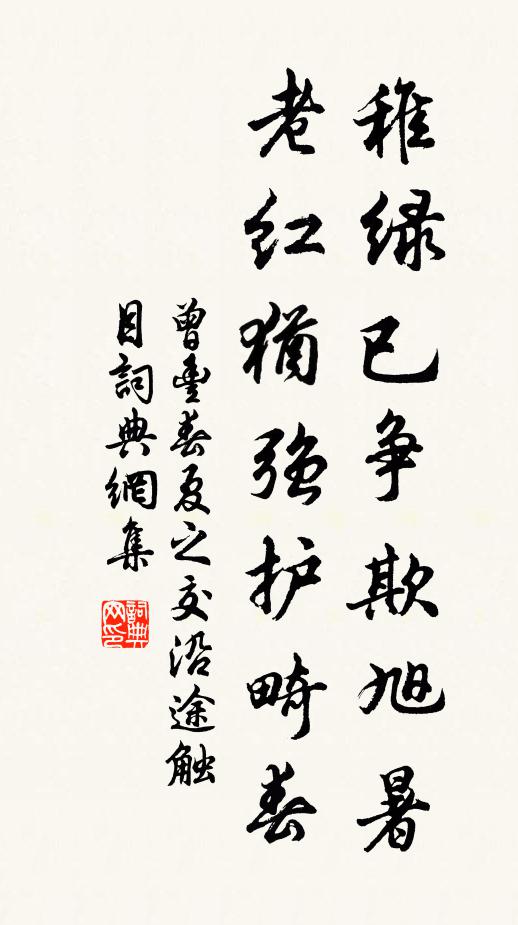 稚绿已争欺旭暑
老红犹强护畸春
曾豊春夏之交沿途触
目詞典網集
詞典网印